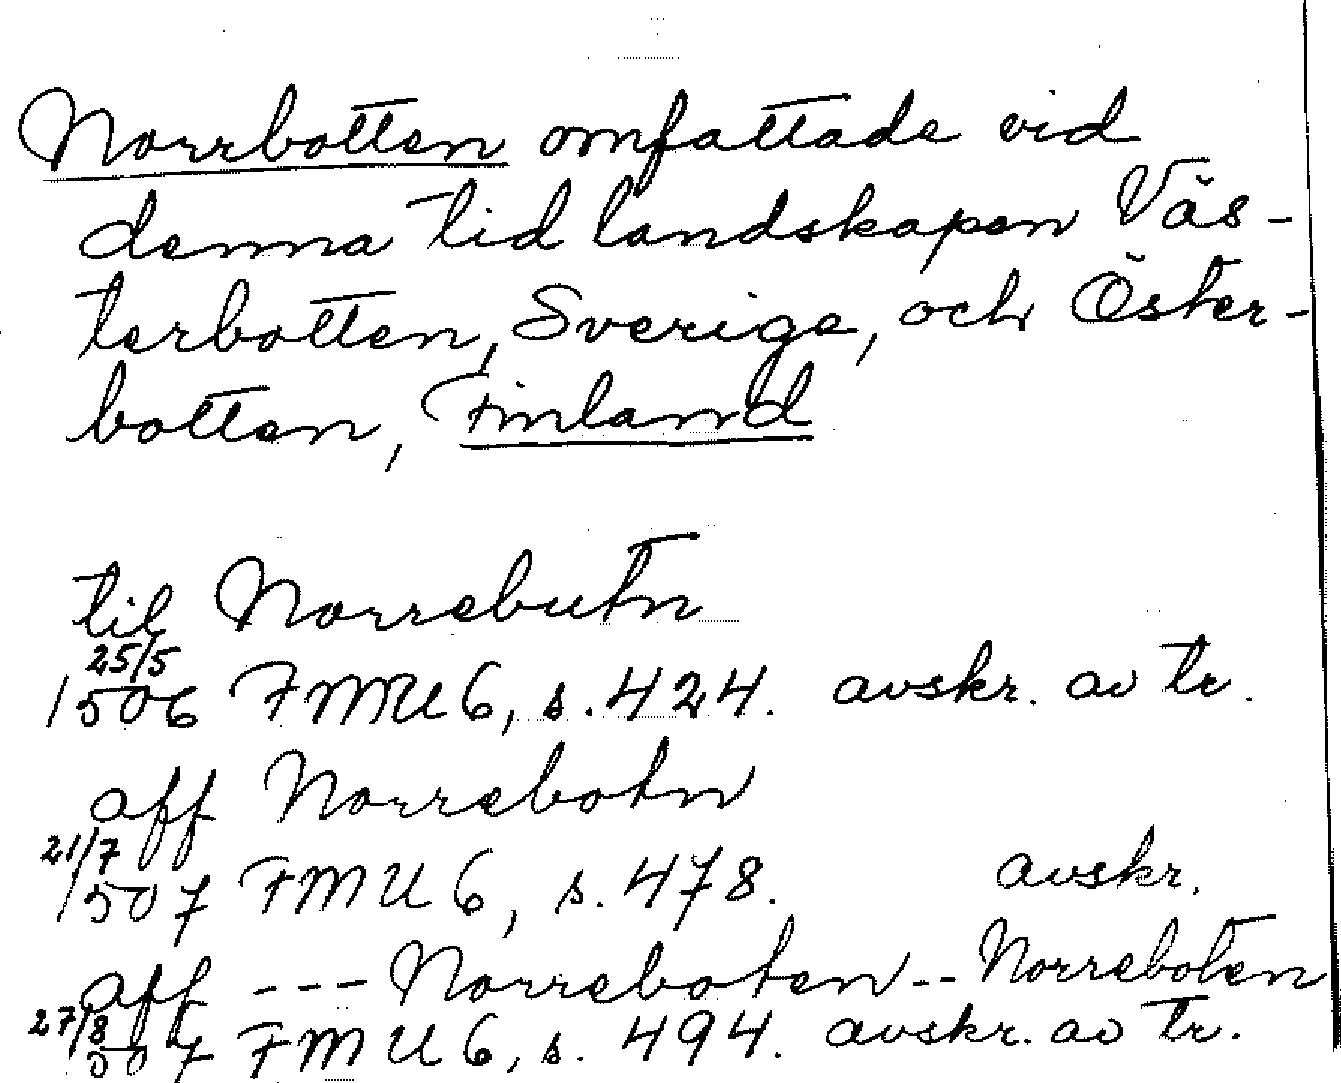 Norrbotten omfattade vid
denna tid landskapen Väs-
terbotten, Sverige, och Öster-
botten, Finland
til Norrebutn
25/5
1506 FMU 6, s. 424. avskr. av tr.
aff Norrebotn
21/7
1507 FMU 6, s. 478. avskr.
aff --- Norreboten -- Norreboten
27/8
507 FMU 6, s. 494. avskr. av tr.